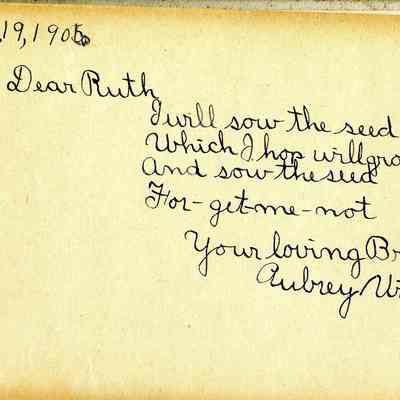 19, 1905
Dear Ruth,
I will sow the seed
Which I hop will gro
And sow the seed
For-get-me-not
Your loving Br
Aubrey